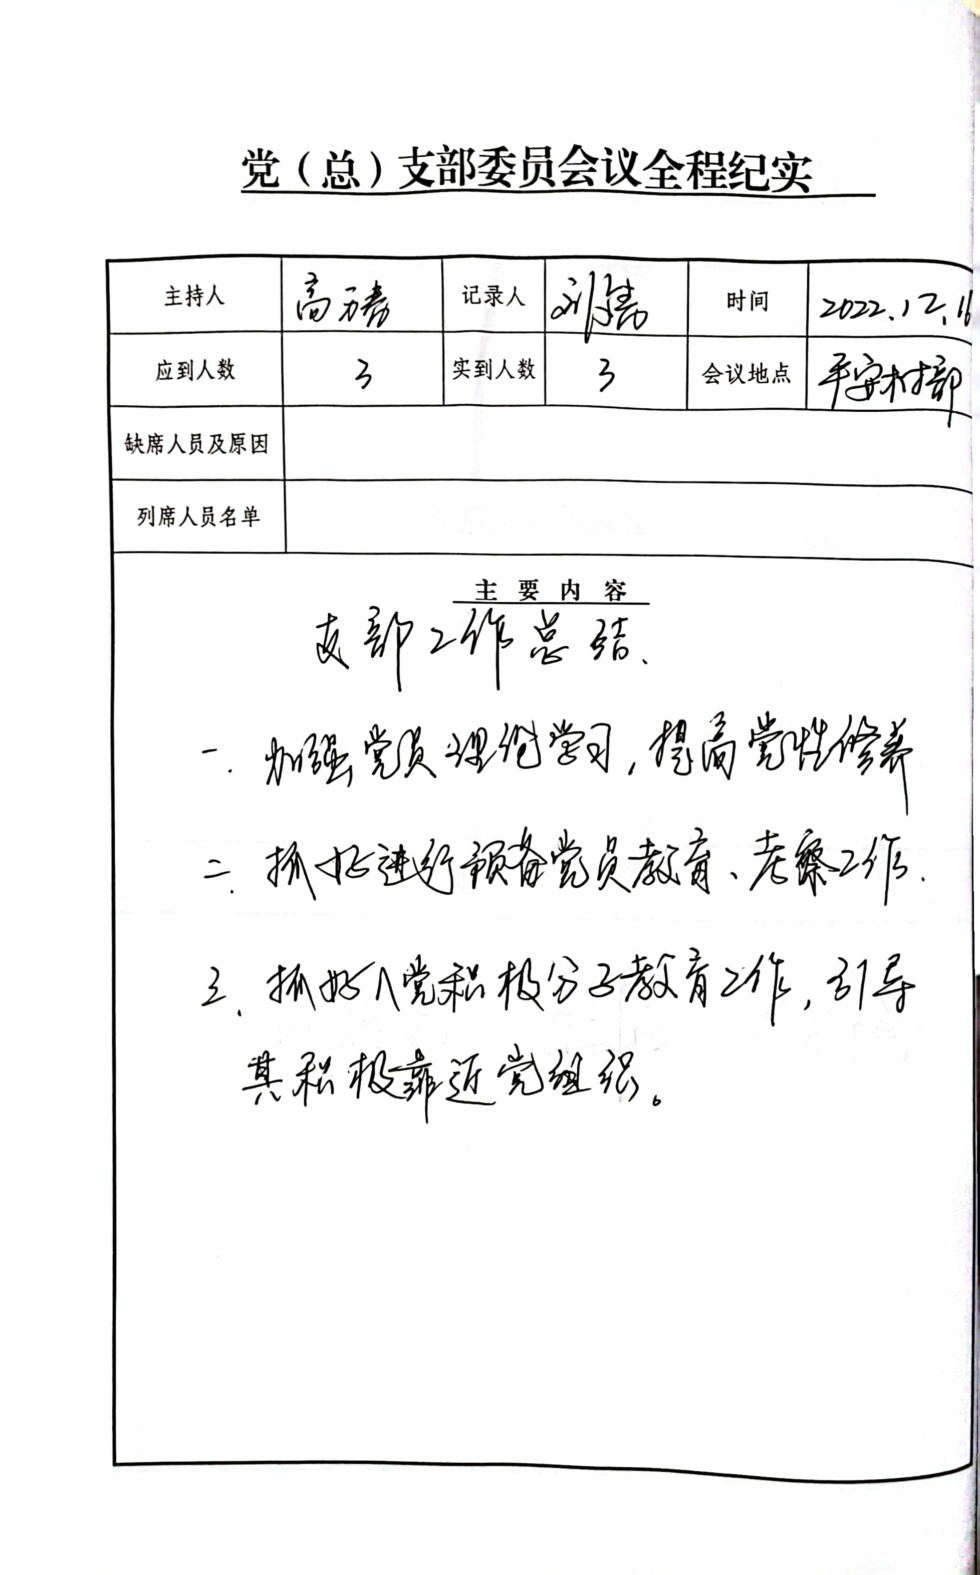 党（总）支部委员会议全程纪实
主持人 高 记录人 刘 时间 2022.12.16
应到人数 3 实到人数 3 会议地点 平安村部
缺席人员及原因
列席人员名单
主要内容
支部工作总结、
一. 加强党员理论学习，提高党性修养
二. 抓好进行预备党员教育、考察工作.
三. 抓好入党积极分子教育工作，引导
其积极靠近党组织。